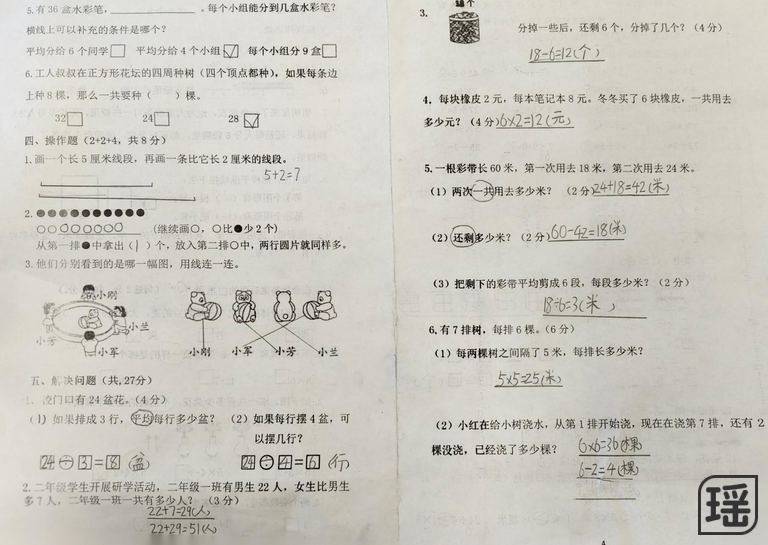 5.有36盒水彩笔，__________。每个小组能分到几盒水彩笔？
横线上可以补充的条件是哪个？
平均分给6个同学□ 平均分给4个小组☑ 每个小组分9盒□
6.工人叔叔在正方形花坛的四周种树（四个顶点都种），如果每条边
上种8棵，那么一共要种（ ）棵。
32□ 24□ 28☑
四、操作题（2+2+4，共8分）
1.画一个长5厘米线段，再画一条比它长2厘米的线段。
5+2=7
2.●●●●●●●●●●
○○○○○○○○ （继续画○，○比●少2个）
从第一排●中拿出（1）个，放入第二排○中，两行圆片就同样多。
3.他们分别看到的是哪一幅图，用线连一连。
小刚
小芳 小兰
小军
小刚 小军 小芳 小兰
五、解决问题（共27分）
1. 门口有24盆花。（4分）
（1）如果排成3行，平均每行多少盆？
24÷3=8（盆）
（2）如果每行摆4盆，可
以摆几行？
24÷4=6（行）
2.二年级学生开展研学活动，二年级一班有男生22人，女生比男生
多7人，二年级一班一共有多少人？（3分）
22+7=29(人)
22+29=51(人)
3.
18个
分掉一些后，还剩6个，分掉了几个？（4分）
18-6=12(个)
4．每块橡皮2元，每本笔记本8元。冬冬买了6块橡皮，一共用去
多少元？（4分）6×2=12(元)
5.一根彩带长60米，第一次用去18米，第二次用去24米。
（1）两次一共用去多少米？（2分）24+18=42(米)
（2）还剩多少米？（2分）60-42=18(米)
（3）把剩下的彩带平均剪成6段，每段多少米？（2分）
18÷6=3(米)
6.有7排树，每排6棵。（6分）
（1）每两棵树之间隔了5米，每排长多少米？
5×5=25(米)
（2）小红在给小树浇水，从第1排开始浇，现在在浇第7排，还有2
棵没浇，已经浇了多少棵？ 6×6=36(棵)
6-2=4(棵)
瑶